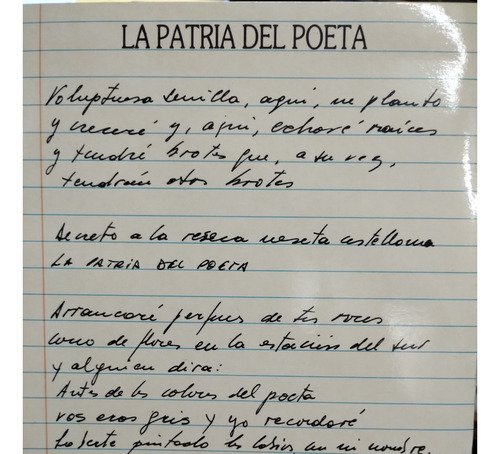 LA PATRIA DEL POETA
Voluptuosa semilla, aquí, me planto
y creceré y, aquí, echaré raíces
y tendré brotes que, a su vez,
tendrán otros brotes
Decreto a la reseca meseta castellana
LA PATRIA DEL POETA
Arrancaré perfumes de tus rocas
como de flores en la estación del sur
y alguien dirá:
Antes de los colores del poeta
vos eras gris y yo recordaré
haberte pintado los labios con mi nombre.